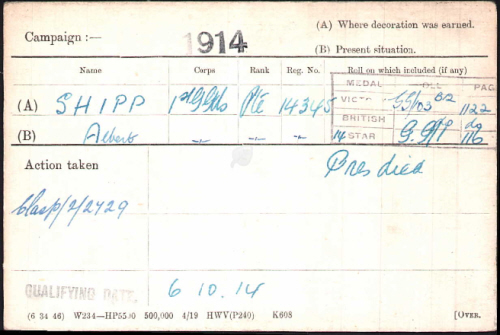 (A) Where decoration was earned.
Campaign :— 1914
(B) Present situation.
Name Corps Rank Reg. No. Roll on which included (if any)
MEDAL PAG
(A) SHIPP 1st G Gds Pte 14345 VICT GG/103 B2 1122
BRITISH
(B) Albert 14 STAR G.G. 116
Action taken Pres died
Clasp/2/2729
QUALIFYING DATE. 6 10. 14
(6 34 46) W234—HP5590 500,000 4/19 HWV(P240) K608 [OVER.